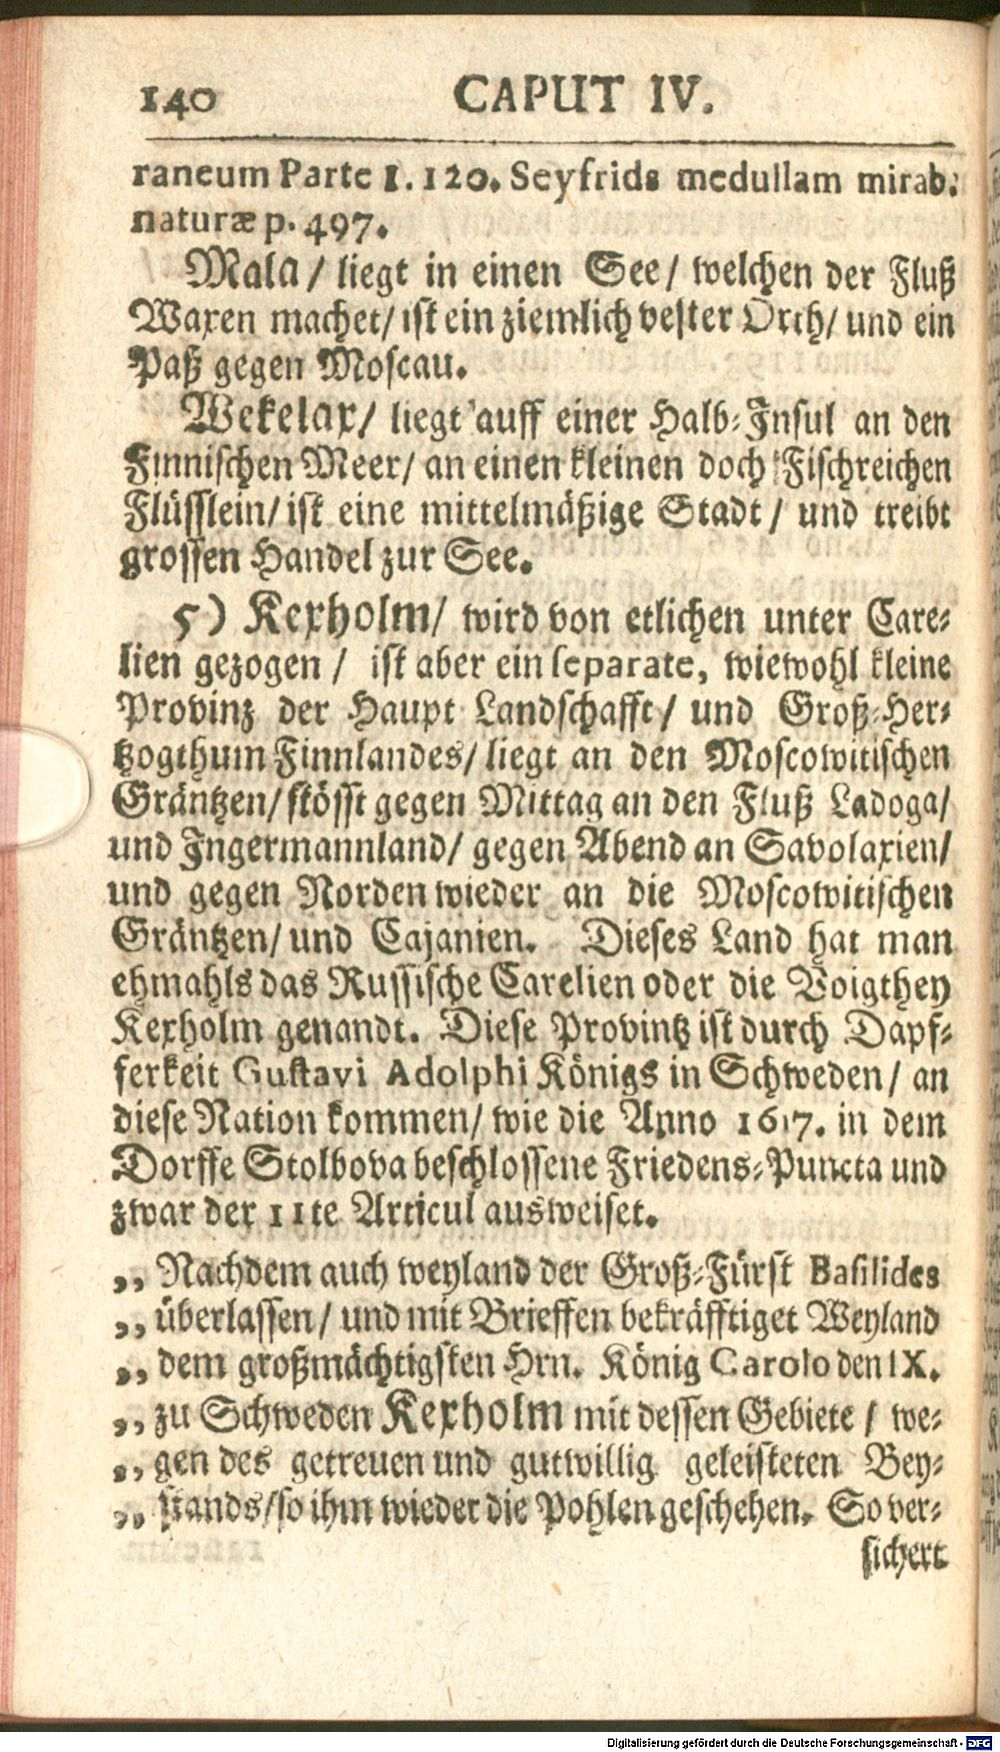 140 CAPUT IV.
raneum Parte I. 120. Seyfrids medullam mirab.
naturæ p. 497.
Mala / liegt in einen See / welchen der Fluß
Waxen machet / ist ein ziemlich vester Orth / und ein
Paß gegen Moscau.
Wekelax / liegt auff einer Halb-Insul an den
Finnischen Meer / an einen kleinen doch Fischreichen
Flüsslein / ist eine mittelmäßige Stadt / und treibt
grossen Handel zur See.
5) Kexholm / wird von etlichen unter Care-
lien gezogen / ist aber ein separate, wiewohl kleine
Provinz der Haupt Landschafft / und Groß-Her-
tzogthum Finnlandes / liegt an den Moscowitischen
Gräntzen / stösst gegen Mittag an den Fluß Ladoga /
und Ingermannland / gegen Abend an Savolaxien /
und gegen Norden wieder an die Moscowitischen
Gräntzen / und Cajanien. Dieses Land hat man
ehmahls das Russische Carelien oder die Voigthey
Kexholm genandt. Diese Provintz ist durch Dapf-
ferkeit Gustavi Adolphi Königs in Schweden / an
diese Nation kommen / wie die Anno 1617. in dem
Dorffe Stolbova beschlossene Friedens-Puncta und
zwar der 11te Articul ausweiset.
„ Nachdem auch weyland der Groß-Fürst Basilides
„ überlassen / und mit Brieffen bekräfftiget Weyland
„ dem großmächtigsten Hrn. König Carolo den IX.
„ zu Schweden Kexholm mit dessen Gebiete / we-
„ gen des getreuen und gutwillig geleisteten Bey-
„ stands / so ihm wieder die Pohlen geschehen. So ver-
sichert
Digitalisierung gefördert durch die Deutsche Forschungsgemeinschaft - DFG